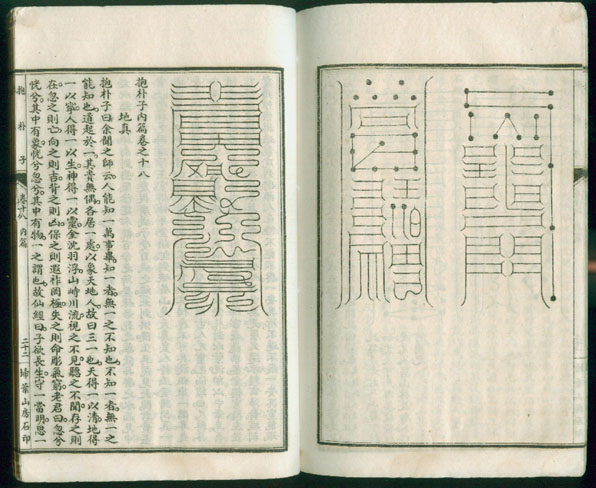 抱朴子內篇卷之十八
地真
抱朴子曰余聞之師云人能知一萬事畢知一者無一之不知也不知一者無一之
能知也道起於一其貴無偶各居一處以象天地人故曰三一也天得一以清地得
一以寧人得一以生神得一以靈金沈羽浮山峙川流視之不見聽之不聞存之則
在忽之則亡向之則吉背之則凶保之則遐祚罔極失之則命彫氣窮老君曰忽兮
恍兮其中有象恍兮忽兮其中有物一之謂也故仙經曰子欲長生守一當明思一
抱朴子 卷十八 內篇 二十二 掃葉山房石印